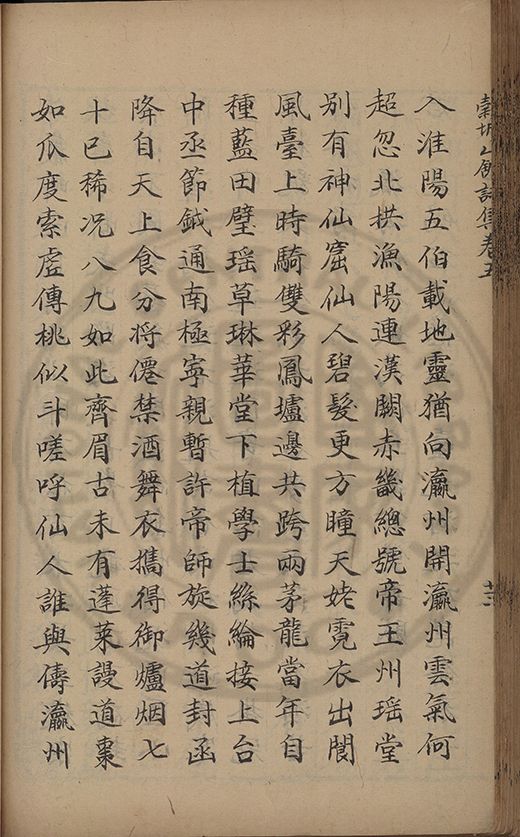 詩集卷五
入淮陽五伯載地靈猶向瀛州開瀛州雲氣何
超忽北拱漁陽連漢闕赤畿總號帝王州瑶堂
別有神仙窟仙人碧髮更方瞳天姥霓衣出閬
風臺上時騎雙彩鳳壚邊共跨兩茅龍當年自
種藍田璧瑶草琳華堂下植學士絲綸接上台
中丞節鉞通南極寧親暫許帝師旋幾道封函
降自天上食分將僊禁酒舞衣擕得御爐烟七
十已稀况八九如此齊眉古未有蓬萊謾道棗
如瓜度索虗傳桃似斗嗟呼仙人誰與儔瀛州